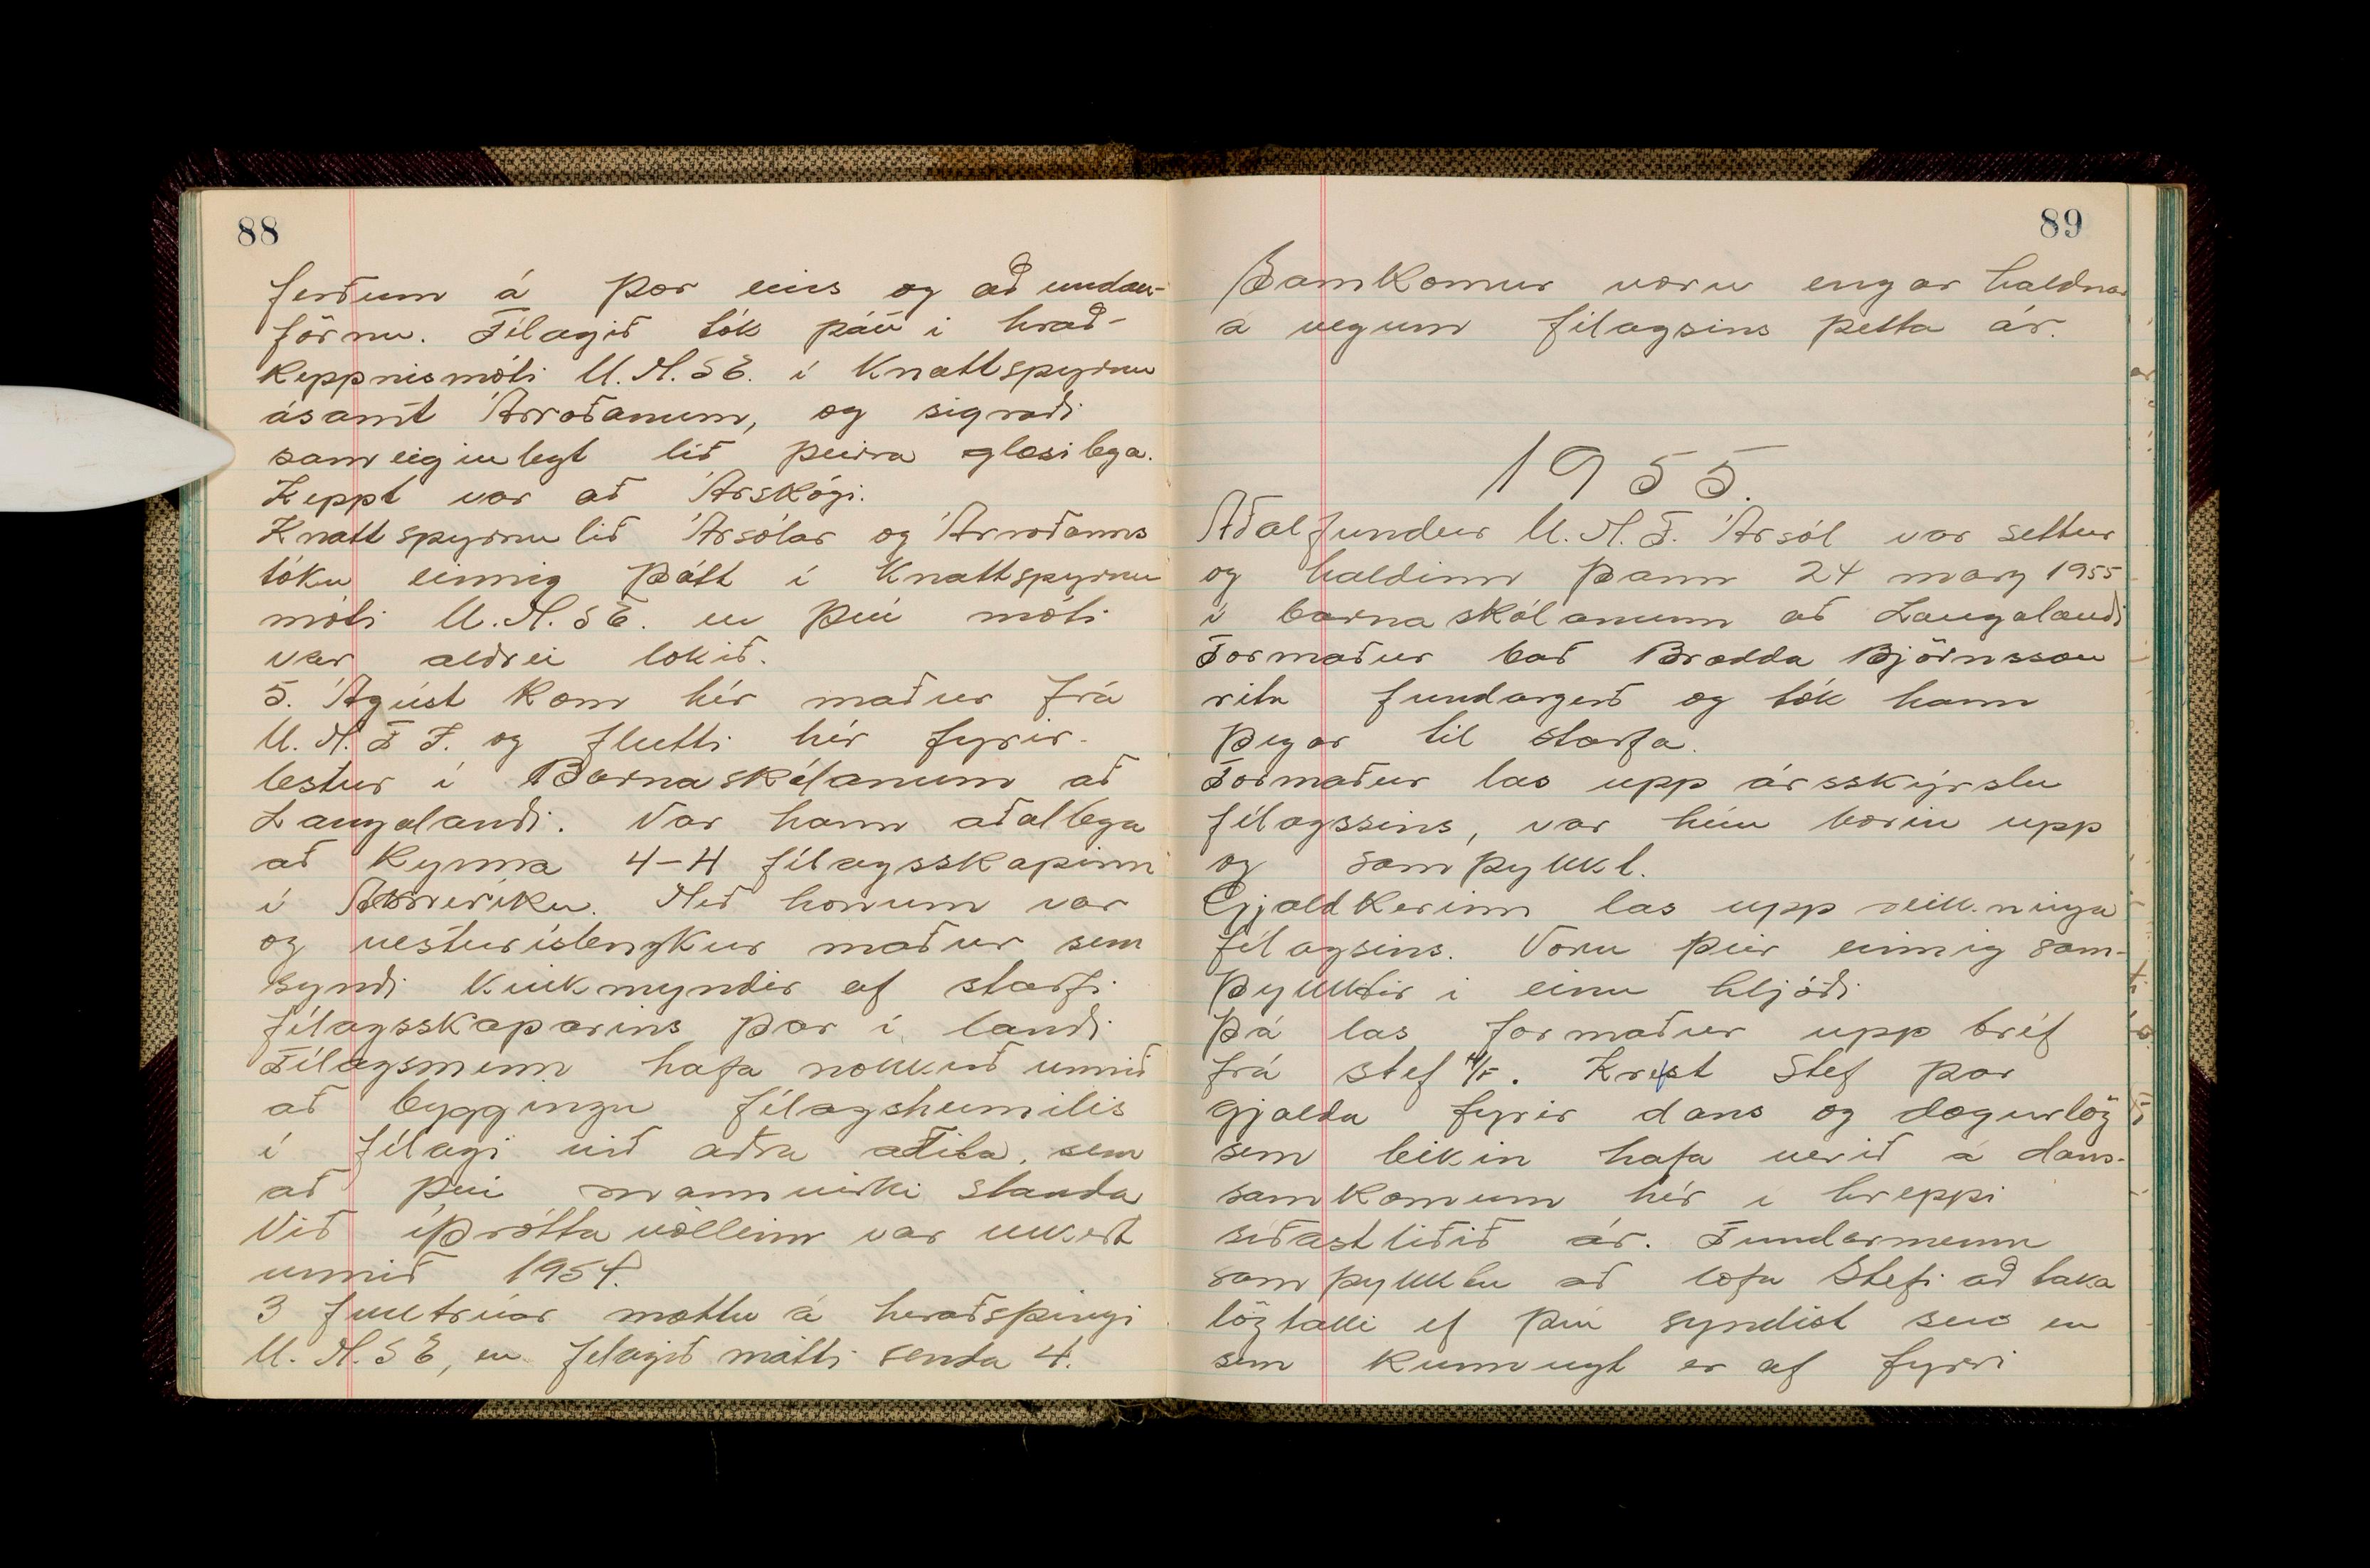 88
ferðum á þær eins og að undan-
förnu. Félagið tók þátt í hrað-
keppnismóti U.M.S.E. í Knattspyrnu
ásamt Árroðanum, og sigraði
sameiginlegt lið þeirra glæsilega.
Keppt var að Árskógi.
Knattspyrnulið Ársólar og Árroðanns
tóku einnig þátt í Knattspyrnu
móti U.M.S.E. en því móti
var aldrei lokið.
5. Ágúst kom hér maður frá
U.M.F.Í. og flutti hér fyrir-
lestur í Barnaskólanum að
Laugalandi. Var hann aðallega
að kynna 4-H félagsskapinn
í Ameríku. Með honum var
og vesturíslenzkur maður sem
sýndi kvikmyndir af starfi
félagsskaparins þar í landi
Félagsmenn hafa nokkuð unnið
að byggingu félagsheimilis
í félagi við aðra aðila, sem
að því mannvirki standa
Við íþróttavöllinn var ekkert
unnið 1954.
3 fulltrúar mættu á heraðsþingi
U.M.S.E, en félagið mátti senda 4.
89
Samkomur voru engar haldnar
á vegum félagsins þetta ár.
1955.
Aðalfundur U.M.F. Ársól var settur
og haldinn þann 24 marz 1955
í barnaskólanum að Laugalandi
Formaður bað Brodda Björnsson
rita fundargerð og tók hann
þegar til starfa.
Formaður las upp ársskýrslu
félagssins, var hún borin upp
og samþykkt.
Gjaldkerinn las upp reikninga
félagsins. Voru þeir einnig sam-
þykktir í einu hljóði
Þá las formaður upp bréf
frá Stef H/F. Krefst Stef þar
gjalda fyrir dans og dægurlög
sem leikin hafa verið á dans-
samkomum hér í hreppi
síðastliðið ár. Fundarmenn
samþykktu að lofa Stefi að taka
lögtaki ef því syndist svo en
sem kunnugt er af fyrri